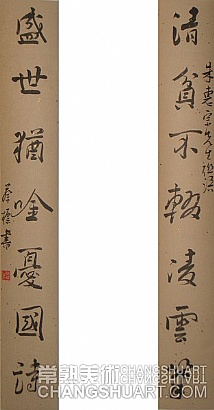 清貧不輟淩雲筆
先生
盛世猶吟憂國詩
書
常熟美術 CHANGSHUART
CHANGSHUART.COM